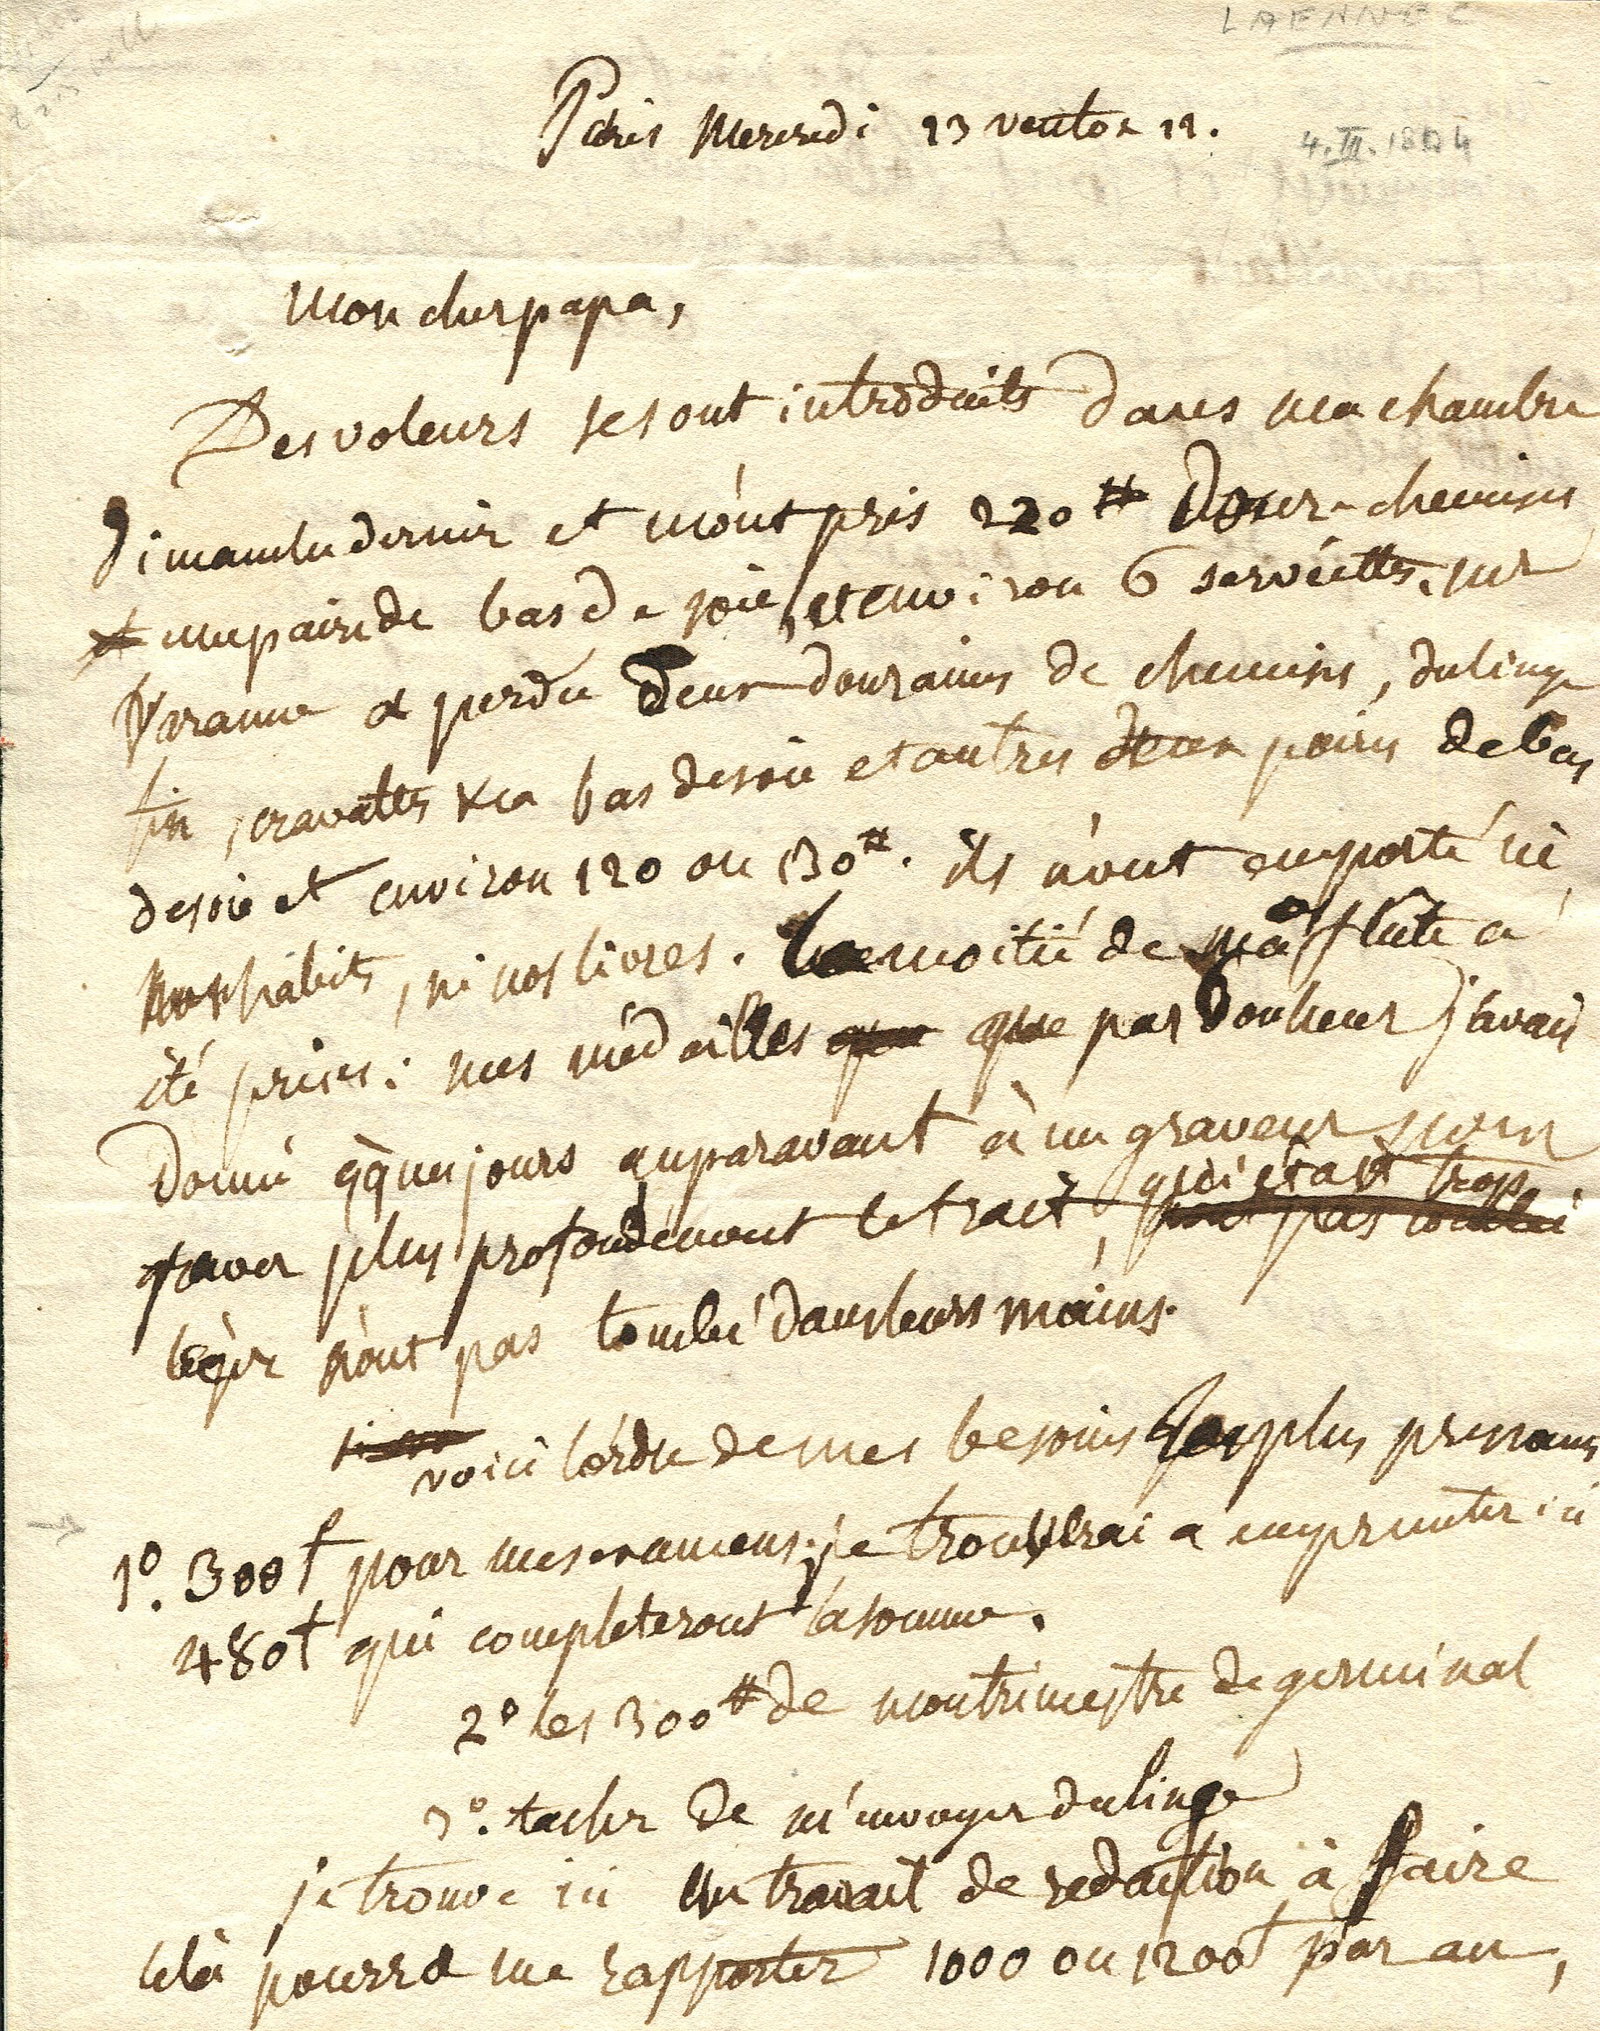 LAENNEC
Paris Mercredi 13 ventose 12.
4.III.1804
Mon cher papa,
Des voleurs se sont introduits dans ma chambre
Dimanche dernier et m'ont pris 220# Douze chemises
une paire de bas de soie, et environ 6 serviettes. mr
Varanne a perdu deux douzaines de chemises, du linge
fin, cravattes &ca bas de soie et autres deux paires de bas
de soie et environ 120 ou 130#. ils n'ont emporté ni
nos habits, ni nos livres. La moitié de ma flûte a
été prise: mes médailles que par bonheur j'avais
donné qques jours auparavant à un graveur pour
graver plus profondément le trait, qui était trop
léger n'ont pas tombé dans leurs mains.
voici l'ordre de mes besoins les plus pressans
1º. 300t pour mes examens; je trouverai a emprunter ici
480t qui completeront la somme.
2º les 300# de mon trimestre de germinal
3º. tacher de m'envoyer du linge
je trouve ici un travail de redaction à faire
celà pourra me rapporter 1000 ou 1200t par an,